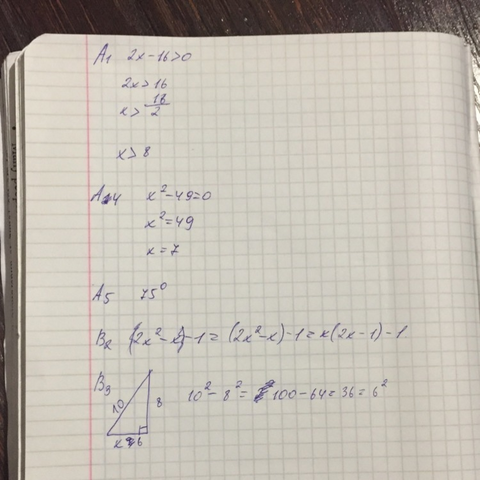 A1 2x-16>0
2x>16
x> 16/2
x>8
A4 x²-49=0
x²=49
x=7
A5 75°
B2 (2x²-x)-1=(2x²-x)-1=x(2x-1)-1
B3 10 8 10²-8²= 100-64=36=6²
x 6